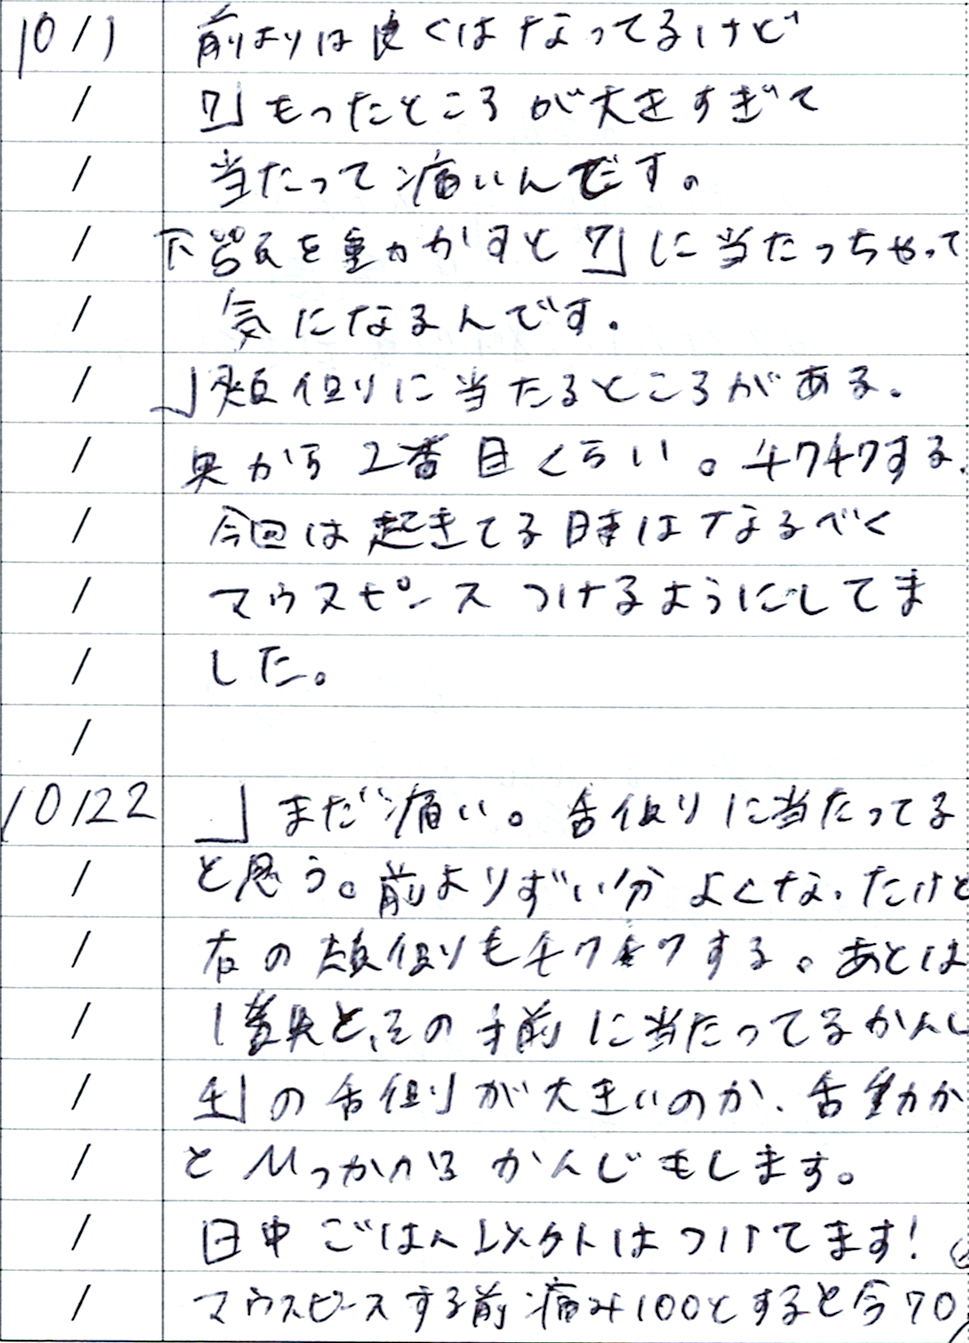 10/1 前よりは良くはなってるけど
/ 7┘もったところが大きすぎて
/ 当たって痛いんです。
/ 下唇を動かすと7┘に当たっちゃって
/ 気になるんです。
/ ┘頬側に当たるところがある。
/ 奥から2番目くらい。チクチクする。
/ 今回は起きてる時はなるべく
/ マウスピースつけるようにしてま
/ した。
/
10/22 ┘まだ痛い。舌側に当たってる
/ と思う。前よりずい分よくなったけど
/ 右の頬側もチクチクする。あとは
/ 1番奥と、その手前に当たってるかんじ
/ ┘の舌側が大きいのか、舌動か
/ とひっかかるかんじもします。
/ 日中ごはん以外はつけてます!
/ マウスピースする前痛み100とすると今70